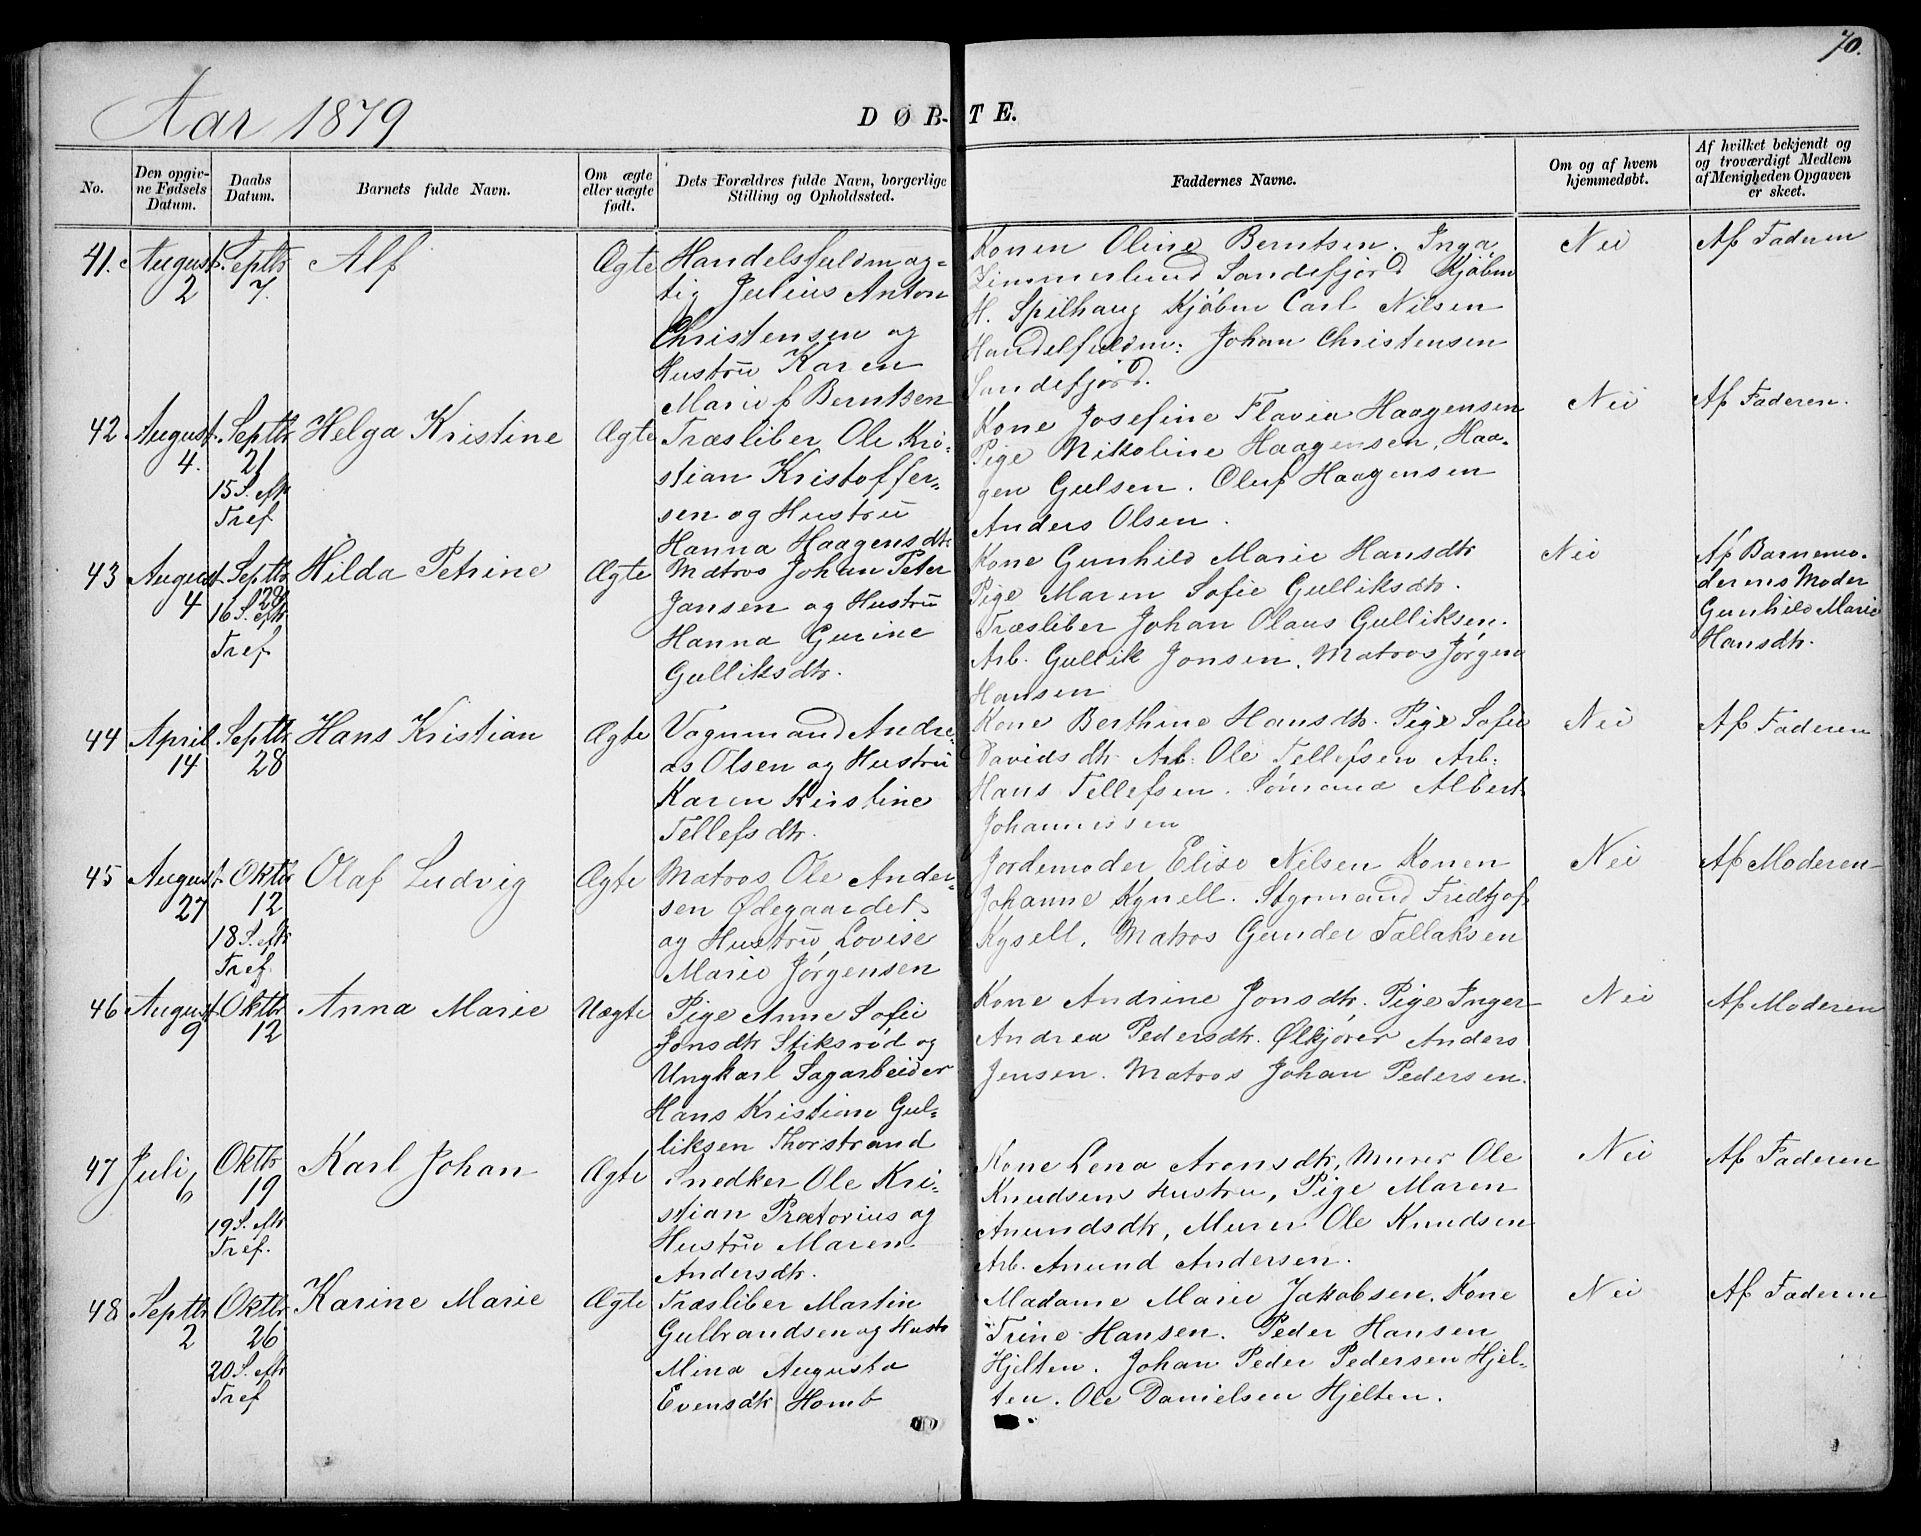 70.
Aar 1879
DØBTE.
No.
Den opgiv-
ne Fødsels
Datum.
Daabs
Datum.
Barnets fulde Navn.
Om ægte
eller uægte
født.
Dets Forældres fulde Navn, borgerlige
Stilling og Opholdssted.
Faddernes Navne.
Om og af hvem
hjemmedøbt.
Af hvilket bekjendt og
og troværdigt Medlem
af Menigheden Opgaven
er skeet.
41.
August
2
Septbr
7.
Alf
Ægte
Handelsfuldmæg-
tig Julius Anton
Christensen og
Hustru Karen
Marie f Berntsen
Konen Oline Berntsen. Inga
Zimmerlund Sandefjord Kjøbm
H. Spilhaug Kjøbm Carl Nilsen
Handelfuldm: Johan Christensen
Sandefjord.
Nei
Af Faderen
42
August
4.
Septbr
21
15 S. eftr
Tref
Helga Kristine
Ægte
Træsliber Ole Kri-
stian Kristoffer-
sen og Hustru
Hanna Haagensdtr
Kone Josefine Flavia Haagensen
Pige Nikoline Haagensen, Haa-
gen Gulsen. Oluf Haagensen
Anders Olsen.
Nei
Af Faderen.
43
August
4
Septbr
28
16 S. eftr
Tref
Hilda Petrine
Ægte
Matros Johan Peter
Jansen og Hustru
Hanna Gurine
Gulliksdtr.
Kone Gunhild Marie Hansdtr
Pige Maren Sofie Gulliksdtr.
Træsliber Johan Olaus Gulliksen.
Arb. Gullik Jonsen, Matros Jørgen
Hansen
Nei
Af Barnemo-
derens Moder
Gunhild Marie
Hansdtr.
44
April
14
Septbr
28
Hans Kristian
Ægte
Vognmand Andre-
as Olsen og Hustru
Karen Kristine
Tellefsdtr.
Kone Berthine Hansdtr. Pige Sofie
Davidsdtr. Arb: Ole Tellefsen Arb:
Hans Tellefsen. Sømand Albert
Johannessen
Nei
Af Faderen
45
August
27
Oktbr
12
18 S. eftr
Tref.
Olaf Ludvig
Ægte
Matros Ole Ander-
sen Ødegaardet
og Hustru Lovise
Marie Jørgensen
Jordemoder Elise Nilsen Konen
Johanne Kysell. Styrmand Fredtjof
Kysell, Matros Gunder Tallaksen
Nei
Af Moderen
46
August
9
Oktbr
12
Anna Marie
Uægte
Pige Anne Sofie
Jonsdtr Stiksrød og
Ungkarl Sagarbeider
Hans Kristian Gul-
liksen Thorstrand
Kone Andrine Jonsdtr. Pige Inger
Andrea Pedersdtr. Ølkjører Anders
Jensen. Matros Johan Pedersen.
Nei
Af Moderen
47
Juli
6
Oktbr
19
19 S. eftr
Tref.
Karl Johan
Ægte
Snedker Ole Kri-
stian Prætorius og
Hustru Maren
Andersdtr.
Kone Lena Aronsdtr, Murer Ole
Knudsens Hustru, Pige Maren
Anundsdtr, Murer Ole Knudsen
Arb. Anund Andersen.
Nei
Af Faderen
48
Septbr
2
Oktbr
26
20 S. eftr
Tref
Karine Marie
Ægte
Træsliber Martin
Gulbrandsen og Hustr
Mina Augusta
Evensdtr Homb
Madame Marie Jakobsen. Kone
Trine Hansen. Peder Hansen
Hjelten. Johan Peder Pedersen Hjel-
ten. Ole Danielsen Hjelten.
Nei
Af Faderen